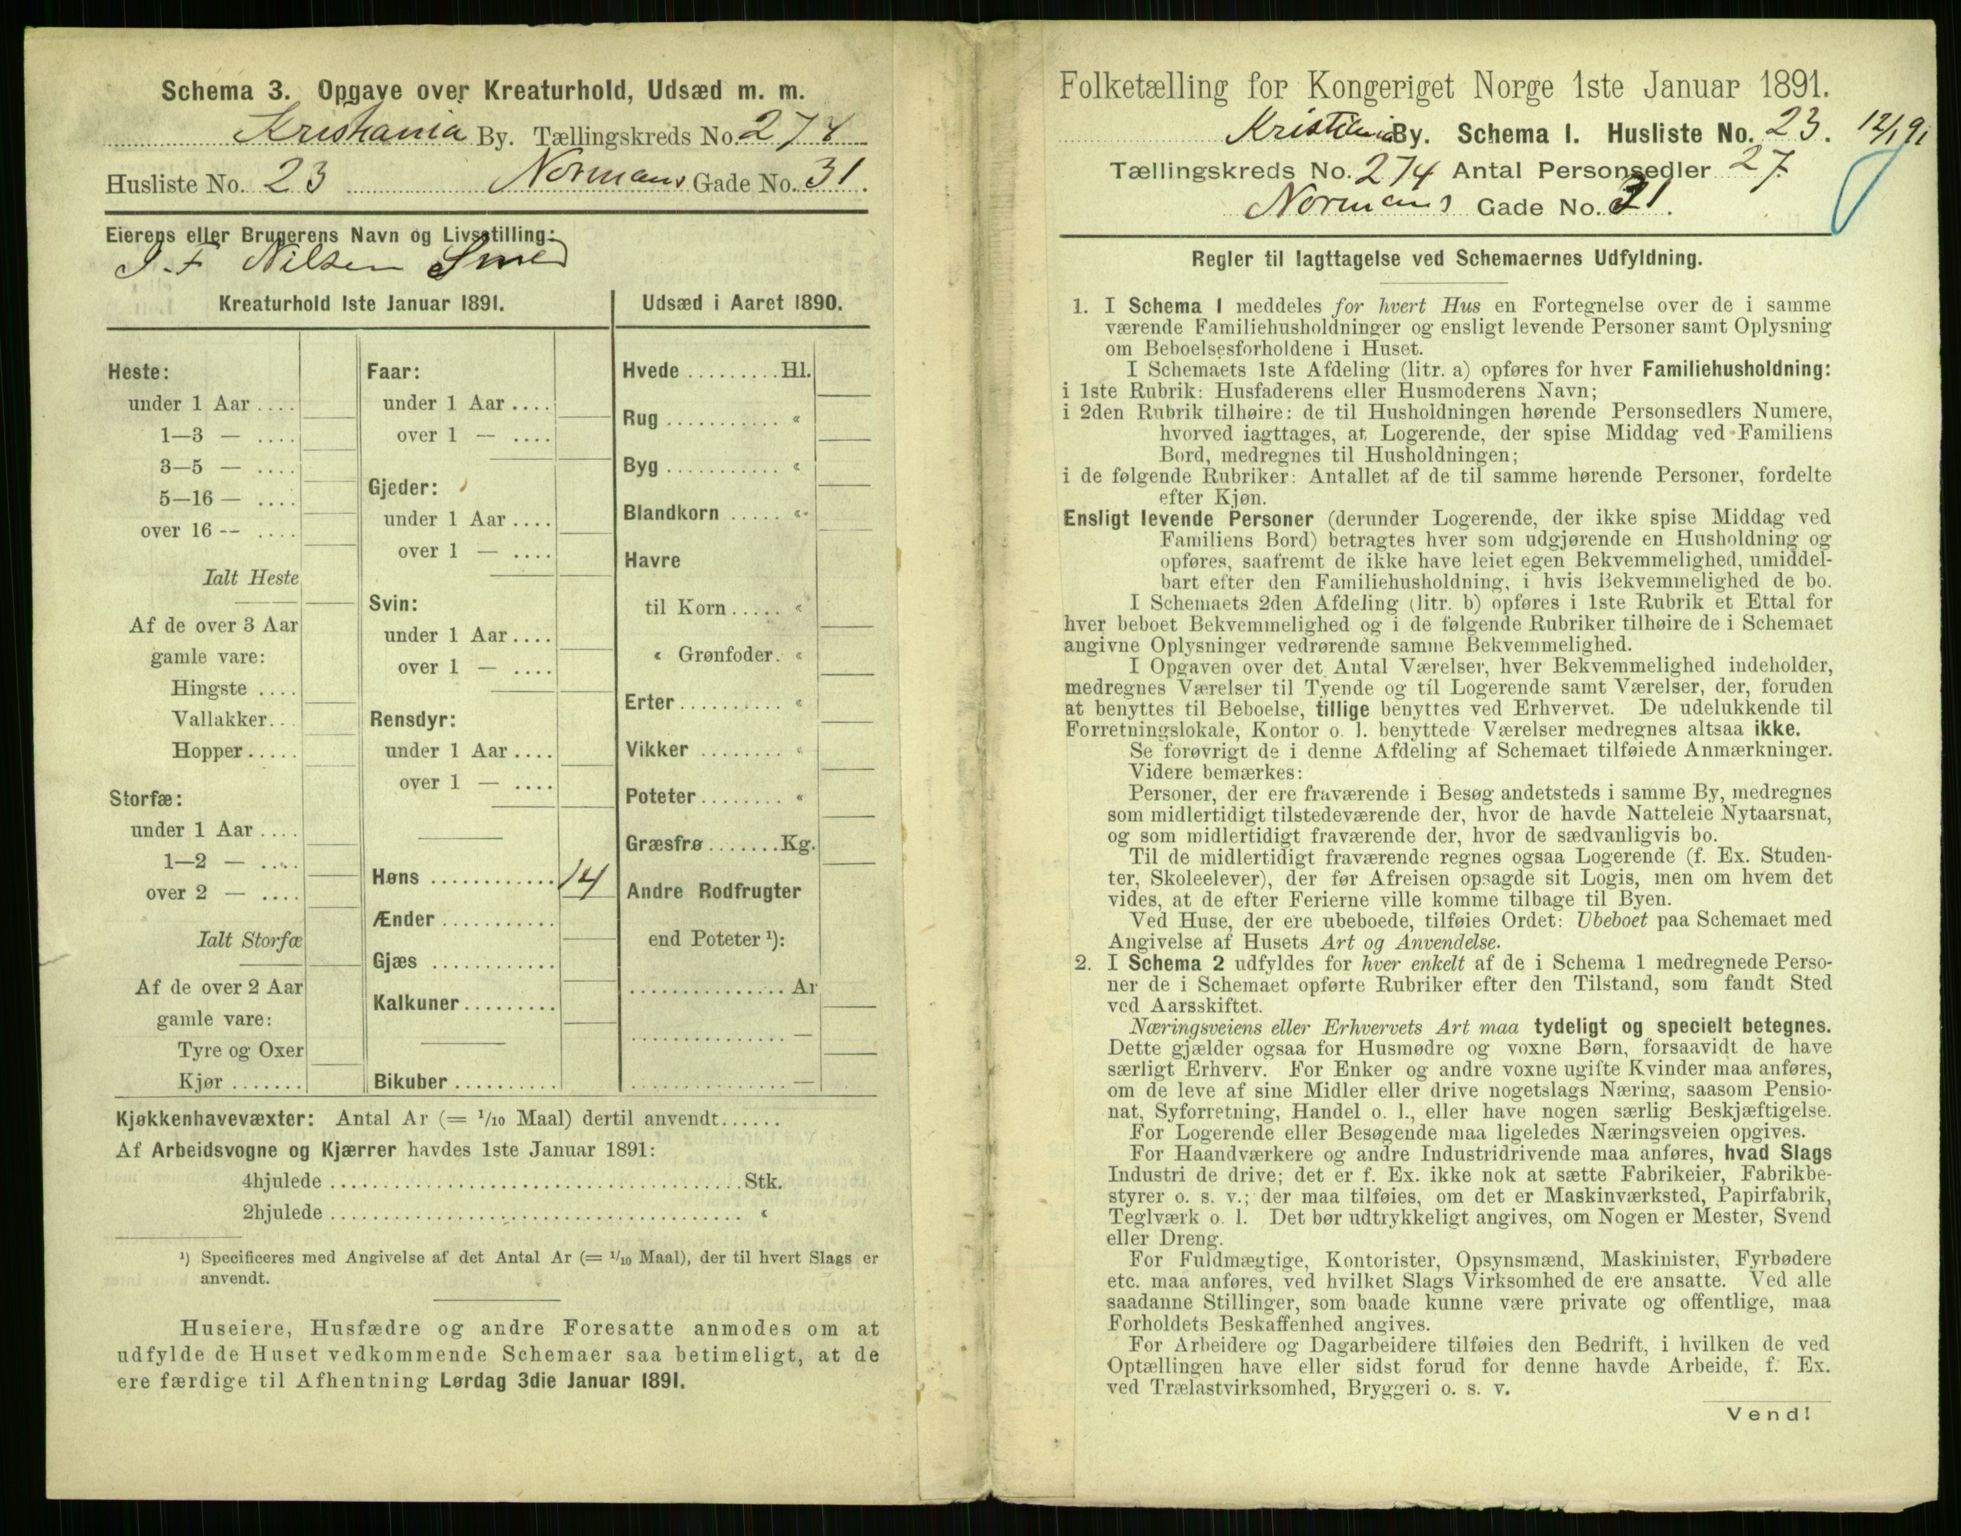 Schema 3. Opgave over Kreaturhold, Udsæd m. m.
Kristiania By. Tællingskreds No. 274
Husliste No. 23 Normans Gade No. 31.
Eierens eller Brugerens Navn og Livsstilling:
J. F Nilsen Smed
Kreaturhold 1ste Januar 1891.
Heste:
under 1 Aar ....
1—3 — ....
3—5 — ....
5—16 — ....
over 16 -- ....
Ialt Heste
Af de over 3 Aar
gamle vare:
Hingste ....
Vallakker...
Hopper.....
Storfæ:
under 1 Aar ....
1—2 — ....
over 2 — ....
Ialt Storfæ
Af de over 2 Aar
gamle vare:
Tyre og Oxer
Kjør .......
Faar:
under 1 Aar ....
over 1 — ....
Gjeder:
under 1 Aar ....
over 1 — ....
Svin:
under 1 Aar ....
over 1 — ....
Rensdyr:
under 1 Aar ....
over 1 — ....
Høns ............ 14
Ænder ...........
Gjæs ............
Kalkuner.........
Bikuber ..........
Udsæd i Aaret 1890.
Hvede .........Hl.
Rug ........... «
Byg ........... «
Blandkorn ..... «
Havre
til Korn ..... «
« Grønfoder. «
Erter.......... «
Vikker ........ «
Poteter........ «
Græsfrø .......Kg.
Andre Rodfrugter
end Poteter ¹):
............... Ar
............... —
............... —
Kjøkkenhavevæxter: Antal Ar (= 1/10 Maal) dertil anvendt......
Af Arbeidsvogne og Kjærrer havdes 1ste Januar 1891:
4hjulede ........................................Stk.
2hjulede ........................................ «
¹) Specificeres med Angivelse af det Antal Ar (= 1/10 Maal), der til hvert Slags er
anvendt.
Huseiere, Husfædre og andre Foresatte anmodes om at
udfylde de Huset vedkommende Schemaer saa betimeligt, at de
ere færdige til Afhentning Lørdag 3die Januar 1891.
Folketælling for Kongeriget Norge 1ste Januar 1891.
Kristiania By. Schema 1. Husliste No. 23. 12/1 91
Tællingskreds No. 274 Antal Personsedler 27.
Normans Gade No. 31.
Regler til Iagttagelse ved Schemaernes Udfyldning.
1. I Schema 1 meddeles for hvert Hus en Fortegnelse over de i samme
værende Familiehusholdninger og ensligt levende Personer samt Oplysning
om Beboelsesforholdene i Huset.
I Schemaets 1ste Afdeling (litr. a) opføres for hver Familiehusholdning:
i 1ste Rubrik: Husfaderens eller Husmoderens Navn;
i 2den Rubrik tilhøire: de til Husholdningen hørende Personsedlers Numere,
hvorved iagttages, at Logerende, der spise Middag ved Familiens
Bord, medregnes til Husholdningen;
i de følgende Rubriker: Antallet af de til samme hørende Personer, fordelte
efter Kjøn.
Ensligt levende Personer (derunder Logerende, der ikke spise Middag ved
Familiens Bord) betragtes hver som udgjørende en Husholdning og
opføres, saafremt de ikke have leiet egen Bekvemmelighed, umiddel-
bart efter den Familiehusholdning, i hvis Bekvemmelighed de bo.
I Schemaets 2den Afdeling (litr. b) opføres i 1ste Rubrik et Ettal for
hver beboet Bekvemmelighed og i de følgende Rubriker tilhøire de i Schemaet
angivne Oplysninger vedrørende samme Bekvemmelighed.
I Opgaven over det Antal Værelser, hver Bekvemmelighed indeholder,
medregnes Værelser til Tyende og til Logerende samt Værelser, der, foruden
at benyttes til Beboelse, tillige benyttes ved Erhvervet. De udelukkende til
Forretningslokale, Kontor o. l. benyttede Værelser medregnes altsaa ikke.
Se forøvrigt de i denne Afdeling af Schemaet tilføiede Anmærkninger.
Videre bemærkes:
Personer, der ere fraværende i Besøg andetsteds i samme By, medregnes
som midlertidigt tilstedeværende der, hvor de havde Natteleie Nytaarsnat,
og som midlertidigt fraværende der, hvor de sædvanligvis bo.
Til de midlertidigt fraværende regnes ogsaa Logerende (f. Ex. Studen-
ter, Skoleelever), der før Afreisen opsagde sit Logis, men om hvem det
vides, at de efter Ferierne ville komme tilbage til Byen.
Ved Huse, der ere ubeboede, tilføies Ordet: Ubeboet paa Schemaet med
Angivelse af Husets Art og Anvendelse.
2. I Schema 2 udfyldes for hver enkelt af de i Schema 1 medregnede Perso-
ner de i Schemaet opførte Rubriker efter den Tilstand, som fandt Sted
ved Aarsskiftet.
Næringsveiens eller Erhvervets Art maa tydeligt og specielt betegnes.
Dette gjælder ogsaa for Husmødre og voxne Børn, forsaavidt de have
særligt Erhverv. For Enker og andre voxne ugifte Kvinder maa anføres,
om de leve af sine Midler eller drive nogetslags Næring, saasom Pensio-
nat, Syforretning, Handel o. l., eller have nogen særlig Beskjæftigelse.
For Logerende eller Besøgende maa ligeledes Næringsveien opgives.
For Haandværkere og andre Industridrivende maa anføres, hvad Slags
Industri de drive; det er f. Ex. ikke nok at sætte Fabrikeier, Fabrikbe-
styrer o. s. v.; der maa tilføies, om det er Maskinværksted, Papirfabrik,
Teglværk o. l. Det bør udtrykkeligt angives, om Nogen er Mester, Svend
eller Dreng.
For Fuldmægtige, Kontorister, Opsynsmænd, Maskinister, Fyrbødere
etc. maa anføres, ved hvilket Slags Virksomhed de ere ansatte. Ved alle
saadanne Stillinger, som baade kunne være private og offentlige, maa
Forholdets Beskaffenhed angives.
For Arbeidere og Dagarbeidere tilføies den Bedrift, i hvilken de ved
Optællingen have eller sidst forud for denne havde Arbeide, f. Ex.
ved Trælastvirksomhed, Bryggeri o. s. v.
Vend!